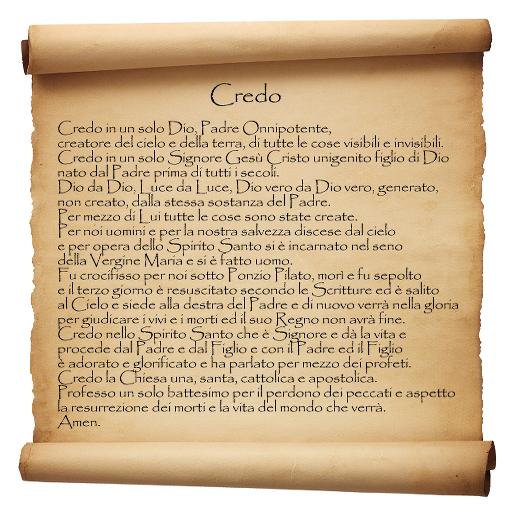 Credo
Credo in un solo Dio, Padre Onnipotente,
creatore del cielo e della terra, di tutte le cose visibili e invisibili.
Credo in un solo Signore Gesù Cristo unigenito figlio di Dio
nato dal Padre prima di tutti i secoli.
Dio da Dio, Luce da Luce, Dio vero da Dio vero, generato,
non creato, dalla stessa sostanza del Padre.
Per mezzo di Lui tutte le cose sono state create.
Per noi uomini e per la nostra salvezza discese dal cielo
e per opera dello Spirito Santo si è incarnato nel seno
della Vergine Maria e si è fatto uomo.
Fu crocifisso per noi sotto Ponzio Pilato, morì e fu sepolto
e il terzo giorno è resuscitato secondo le Scritture ed è salito
al Cielo e siede alla destra del Padre e di nuovo verrà nella gloria
per giudicare i vivi e i morti ed il suo Regno non avrà fine.
Credo nello Spirito Santo che è Signore e dà la vita e
procede dal Padre e dal Figlio e con il Padre ed il Figlio
è adorato e glorificato e ha parlato per mezzo dei profeti.
Credo la Chiesa una, santa, cattolica e apostolica.
Professo un solo battesimo per il perdono dei peccati e aspetto
la resurrezione dei morti e la vita del mondo che verrà.
Amen.